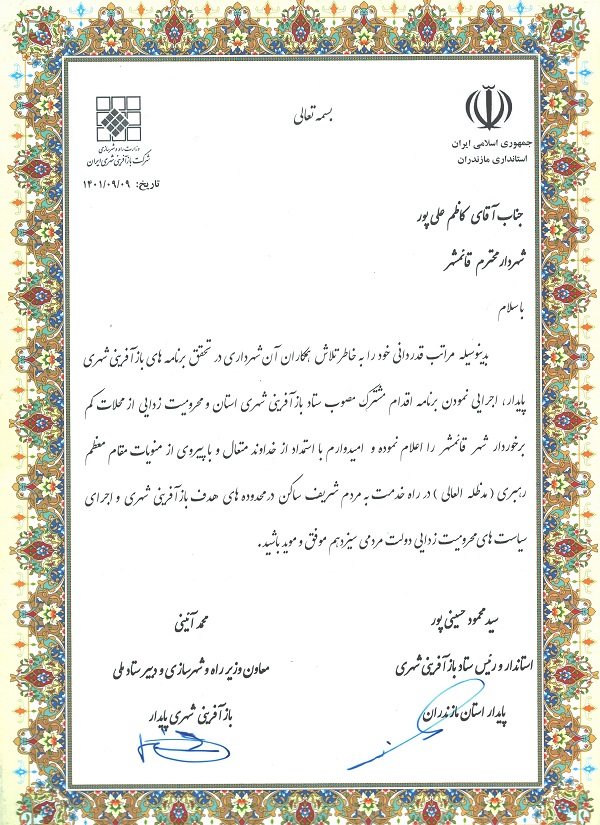 بسمه تعالی
جمهوری اسلامی ایران
استانداری مازندران
وزارت راه و شهرسازی
شرکت بازآفرینی شهری ایران
تاریخ: ۱۴۰۱/۰۹/۰۹
جناب آقای کاظم علی پور
شهردار محترم قائمشهر
با سلام
بدینوسیله مراتب قدردانی خود را به خاطر تلاش همکاران آن شهرداری در تحقق برنامه های بازآفرینی شهری
پایدار، اجرایی نمودن برنامه اقدام مشترک مصوب ستاد بازآفرینی شهری استان و محرومیت زدایی از محلات کم
برخوردار شهر قائمشهر را اعلام نموده و امیدوارم با استمداد از خداوند متعال و با پیروی از منویات مقام معظم
رهبری (مدظله العالی) در راه خدمت به مردم شریف ساکن درمحدوده های هدف بازآفرینی شهری و اجرای
سیاست های محرومیت زدایی دولت مردمی سیزدهم موفق و موید باشید.
سید محمود حسینی پور
استاندار و رئیس ستاد بازآفرینی شهری
پایدار استان مازندران
محمد آئینی
معاون وزیر راه و شهرسازی و دبیر ستاد ملی
بازآفرینی شهری پایدار